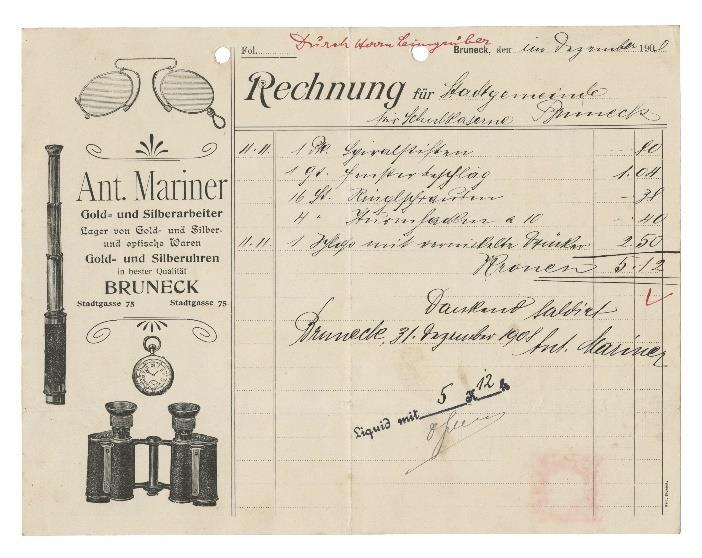 Fol.
Durch Herrn Leimgruber
Bruneck, den im Dezember 1908
Rechnung für Stadtgemeinde
für Schulkaserne Bruneck
Ant. Mariner
Gold- und Silberarbeiter
Lager von Gold- und Silber-
und optische Waren
Gold- und Silberuhren
in bester Qualität
BRUNECK
Stadtgasse 75 Stadtgasse 75
11.11. 1 Pk. Spiralstiften -.80
1 Gr. Fensterbeschläg 1.04
16 St. Ringlschrauben -.38
4 " Sturmhacken a 10 -.40
11.11. 1 mit vernickelte Drücker 2.50
Kronen 5.12
Dankend saldiert
Bruneck, 31. Dezember 1908
Ant. Mariner
Liquid mit 5 K 12 h